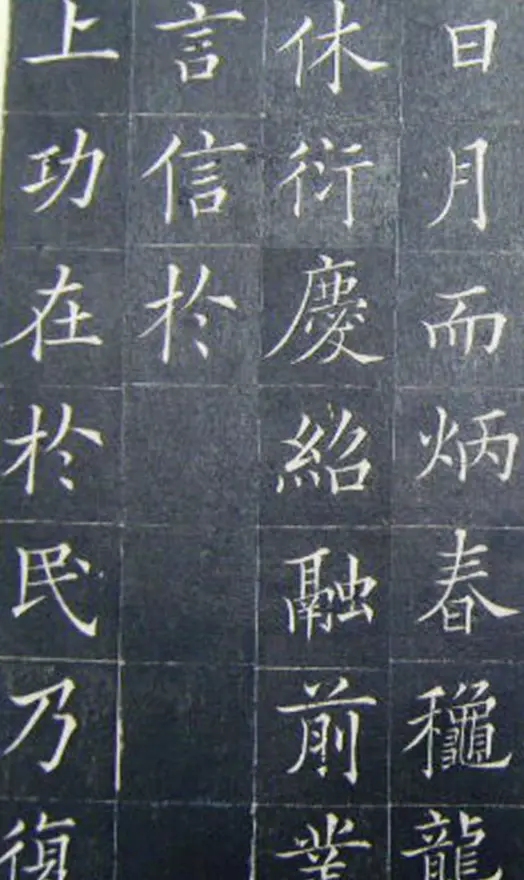 日月而炳春穐龍
休衍慶紹融前業
言信於
上功在於民乃復